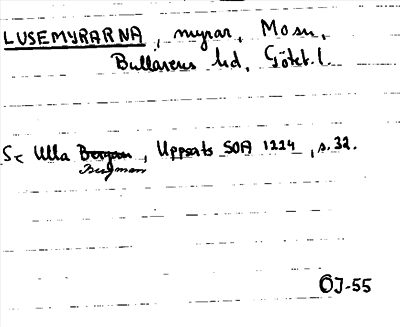 LUSEMYRARNA, myrar, Mosn,
Bullarens hd, Göteb. l.
Se Ulla Bergman, Uppsats SOA 1224, s. 32.
Bergman
ÖJ-55